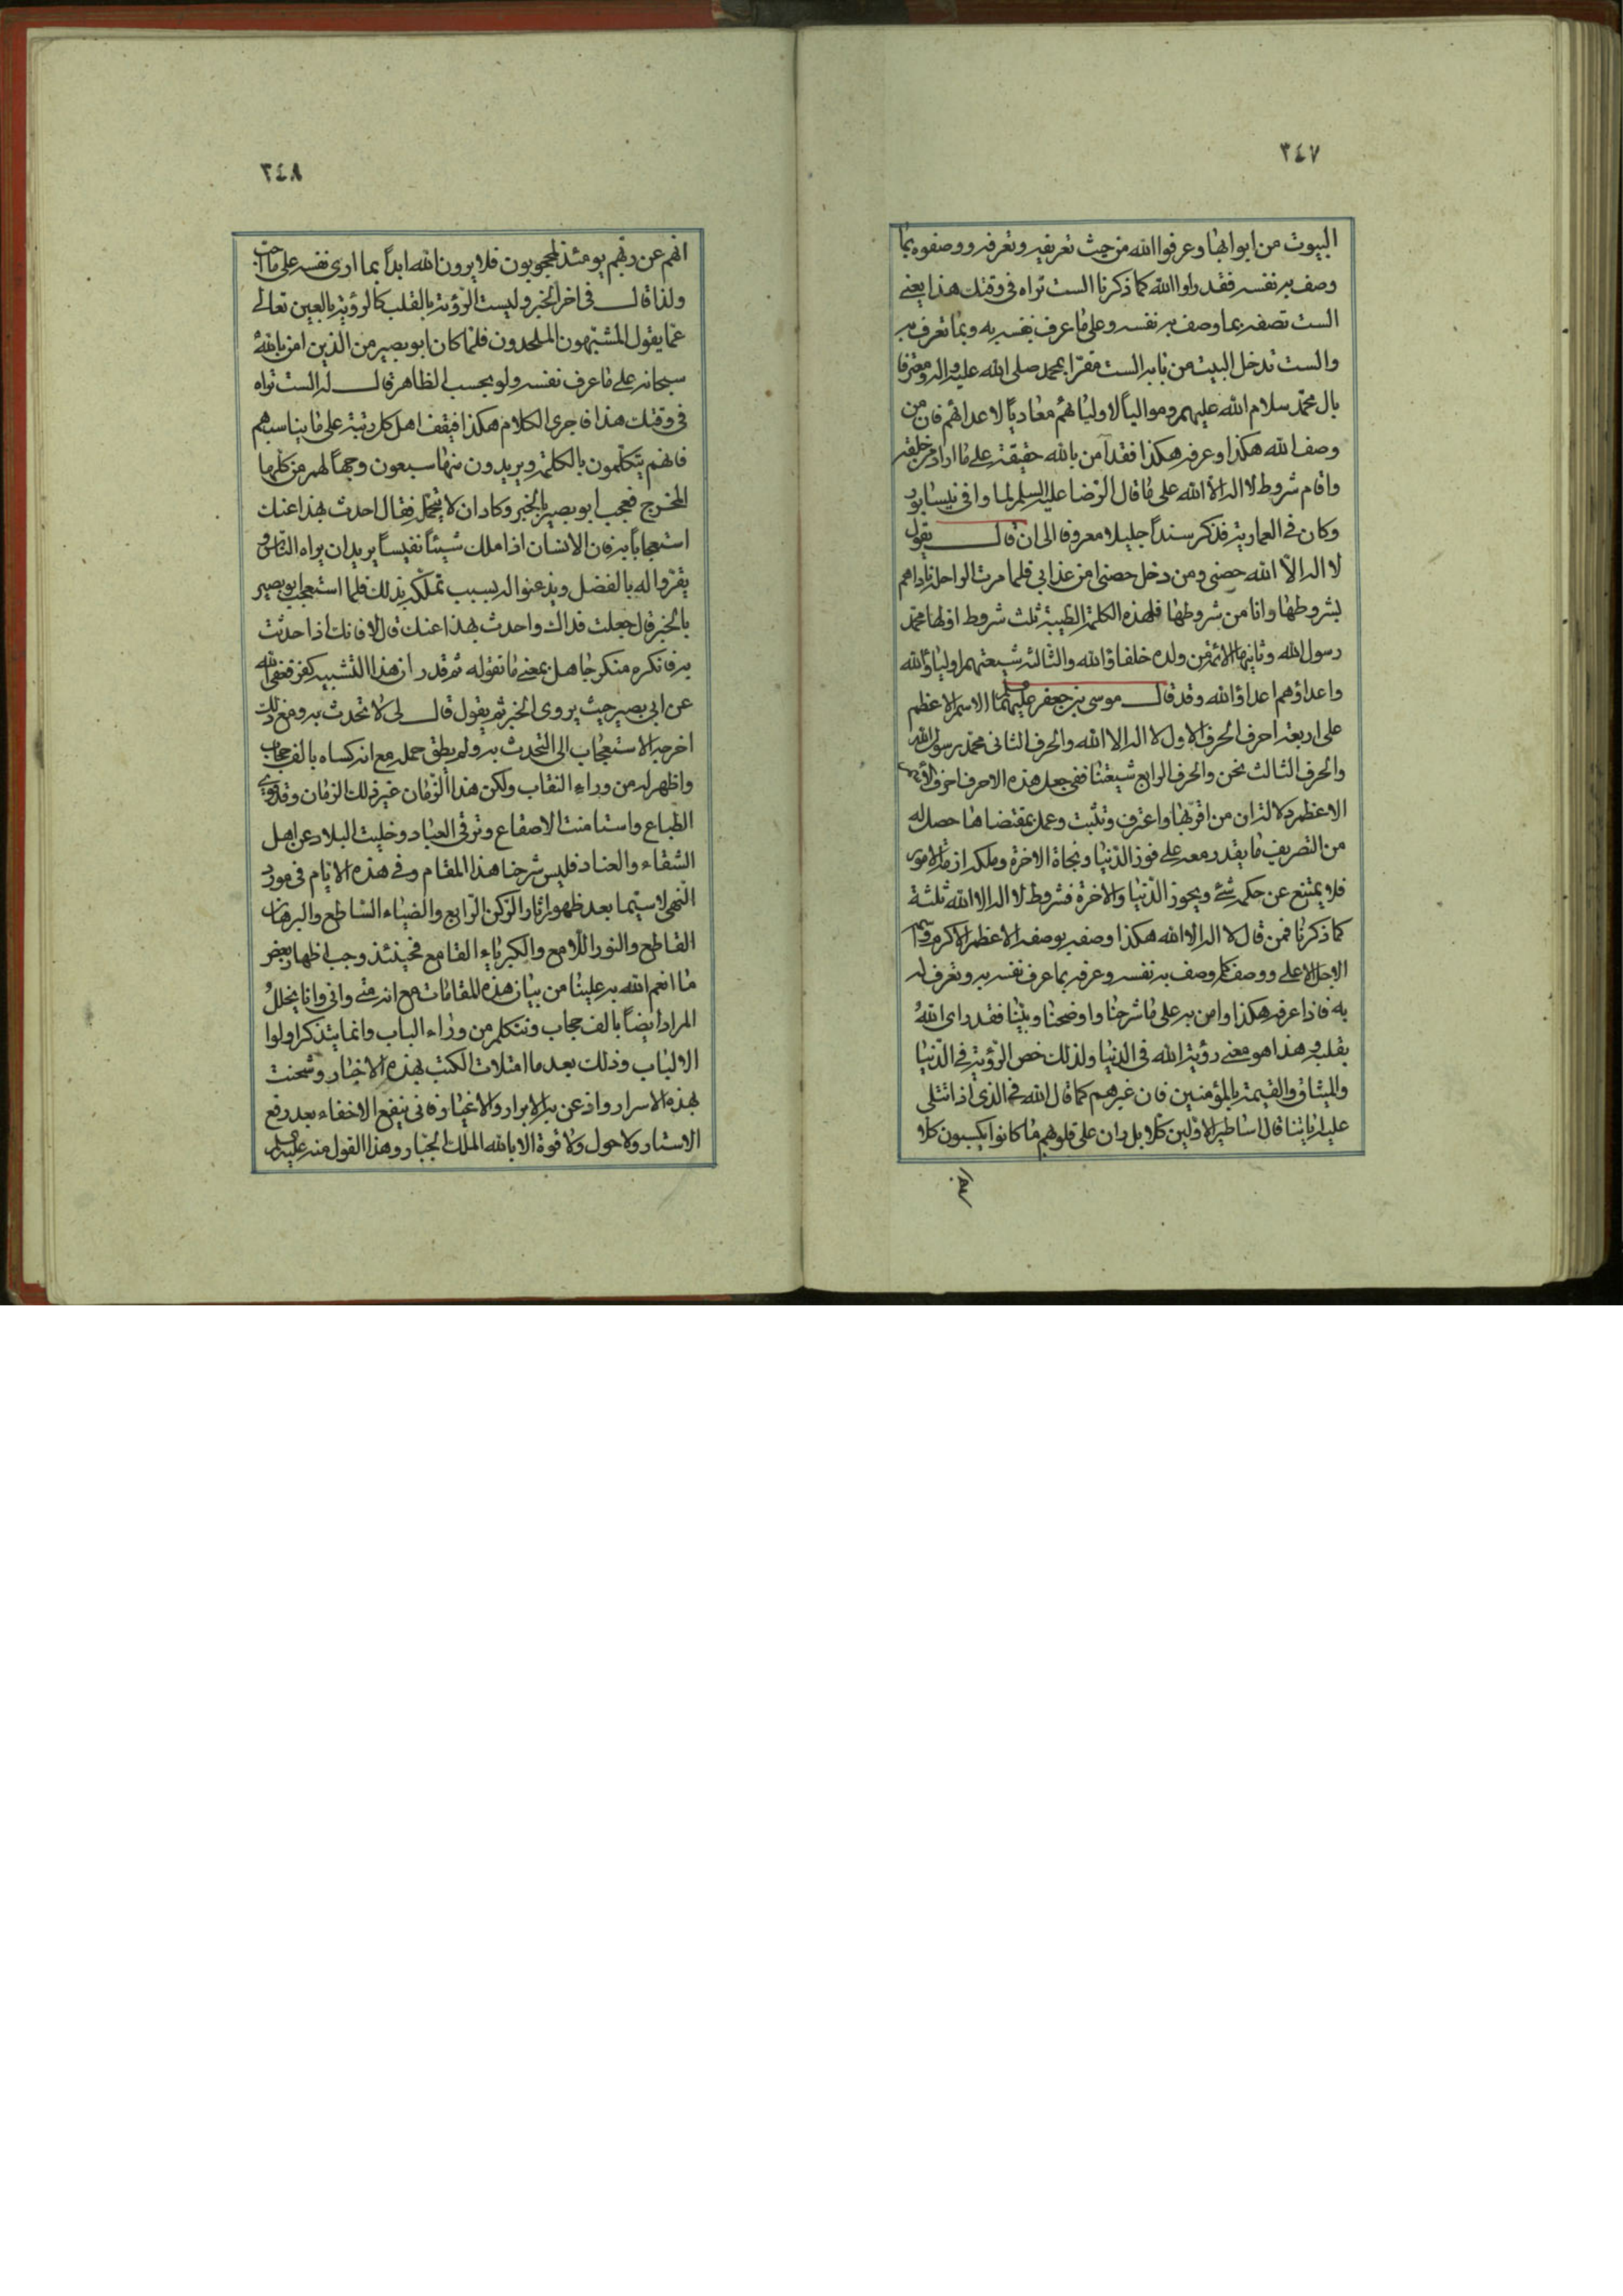 ٣٤٧
البيوت من ابوابها وعرفوا الله من حيث تعريفه وتعرفه ووصفوه بما
وصف به نفسه فقد راوا الله كما ذكرنا الست تراه فى وقتك هذا يعنى
الست تصفه بما وصف به نفسه وعلى ما عرف نفسه به وبما تعرف به
والست تدخل البيت من بابه الست مقرّا بمحمد صلى الله عليه واله ومعترفا
بال محمّد سلام الله عليهم ومواليا لاوليائهم معاديا لاعدائهم فان من
وصف الله هكذا وعرفه هكذا فقد آمن بالله حقيقة على ما اراد من خلقه
واقام شروط لا اله الا الله على ما قال الرّضا عليه السلم لما وافى نيسابور
وكان فى العمارية فذكر سنداً جليلا معروفا الى ان قال يقول
لا اله الّا الله حصنى ومن دخل حصنى امن عذابى فلما مرت الراحلة ناداهم
بشروطها وانا من شروطها فلهذه الكلمة الطيبة ثلث شروط اولها محمّد
رسول الله وثانيها الائمة من ولده خلفاؤ الله والثالث شيعتهم اولياؤ الله
واعداؤهم اعداؤ الله وقد قال موسى بن جعفر عليهما الاسم الاعظم
على اربعة احرف الحرف الاول لا اله الا الله والحرف الثانى محمّد رسول الله
والحرف الثالث نحن والحرف الرابع شيعتنا ففى جعل هذه الاحرف احرف الاسم
الاعظم دلالة ان من اقرّ بها واعترف وتثبت وعمل بمقتضاها حصل له
من التصريف ما يقدر معه على فوز الدّنيا ونجاة الاخرة وملك ازمة الامور
فلا يمتنع عن حكمه شئ ويحوز الدّنيا والاخرة فشروط لا اله الا الله ثلثة
كما ذكرنا فمن قال لا اله الا الله هكذا وصفه بوصفه الاعظم الاكرم
الاجل الاعلى ووصفه كما وصف به نفسه وعرفه بما عرف نفسه به وتعرف له
به فاذا عرفه هكذا وامن به على ما شرحنا واوضحنا وبيّنا فقد راى اللهَ
بقلبه وهذا هو معنى رؤية الله فى الدنيا ولذلك خص الرّؤية فى الدّنيا
والميثاق والقيمة بالمؤمنين فان غيرهم كما قال الله فى الذى اذا تتلى
عليه اياتنا قال اساطير الاوّلين كلا بل ران على قلوبهم ما كانوا يكسبون كلا
انهم
٣٤٨
انهم عن ربهم يومئذ لمحجوبون فلا يرون الله ابداً بما ارى نفسه على ما احب
ولذا قال فى اخر الخبر وليست الرّؤية بالقلب كالرؤية بالعين تعالى
عما يقول المشبّهون الملحدون فلما كان ابو بصير من الذين امن بالله
سبحانه على ما عرف نفسه ولو بحسب الظاهر قال له الست تراه
فى وقتك هذا فاجرى الكلام هكذا فيقف اهل كل رتبة على ما يناسبهم
فانهم يتكلّمون بالكلمة ويريدون منها سبعون وجهاً لهم من كلها
المخرج فعجب ابو بصير بالخبر وكاد ان لا يتحمّل فقال احدث بهذا عنك
استعجاباً به فان الانسان اذا ملك شيئاً نفيساً يريد ان يراه الناس و
يقرّوا له بالفضل ويذعنوا له بسبب تملّكه بذلك فلما استعجب ابو بصير
بالخبر قال جعلت فداك واحدث بهذا عنك قال لا فانك اذا حدثت
به فانكره منكر جاهل بمعنى ما تقوله ثم قدر ان هذا التشبيه كفر فعفى الله
عن ابى بصير حيث يروى الخبر ثم يقول قال لى لا تحدث به ومع ذلك
اخرجه الاستعجاب الى التحدث به ولم يطق حمله مع انه كساه بالف حجاب
واظهر له من وراء النقاب ولكن هذا الزّمان غير ذلك الزمان وقد
الطباع واستامنت الاصقاع وترقى العباد وخليت البلاد عن اهل
الشقاء والعناد فليس شرحنا هذا المقام وفى هذه الايّام فى مورد
النّهى لا سيّما بعد ظهور اثار الرّكن الرّابع والضياء السّاطع والبرهان
القاطع والنور اللّامع والكبرياء القامع فحينئذ وجب اظهار بعض
ما انعم الله به علينا من بيان هذه المقامات مع انه منّى وانى وانا
المراد ايضاً بالف حجاب ونتكلم من وراء الباب وانما يتذكر اولوا
الالباب وذلك بعد ما امتلات الكتب بهذه الاخبار وشحنت
بهذه الاسرار واذعن به الابرار والاغيار فانى ينفع الاخفاء بعد رفع
الاستار ولا حول ولا قوة الا بالله الملك الجبّار وهذا القول منه عليه